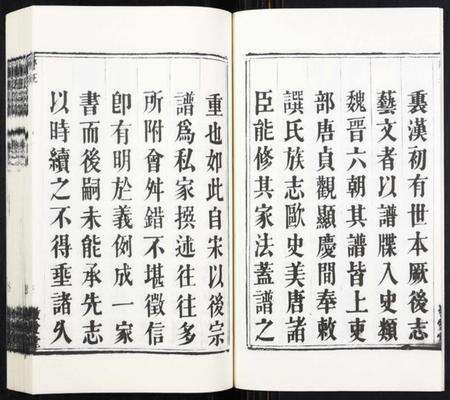 裏漢初有世本厥後志
藝文者以譜牒入史類
魏晉六朝其譜皆上吏
部唐貞觀顯慶間奉敕
譔氏族志歐史美唐諸
臣能修其家法蓋譜之
重也如此自宋以後宗
譜爲私家撰述往往多
所附會舛錯不堪徵信
卽有明於義例成一家
書而後嗣未能承先志
以時續之不得垂諸久